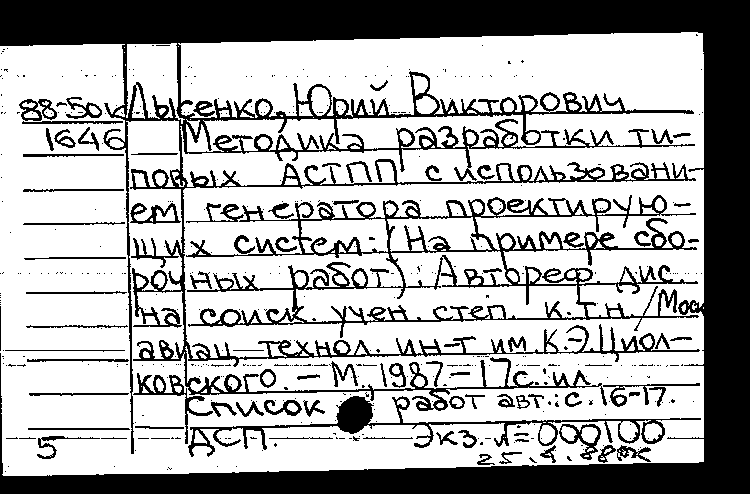 88-50к Лысенко, Юрий Викторович
1646 Методика разработки ти-
повых АСТПП с использовани-
ем генератора проектирую-
щих систем: (На примере сбо-
рочных работ): Автореф. дис.
на соиск. учен. степ. к.т.н. / Моск
авиац. технол. ин-т им. К.Э.Циол-
ковского. - М., 1987 - 17с.: ил
Список работ авт.: с. 16-17.
5 ДСП. Экз. №=000100
25.4.88